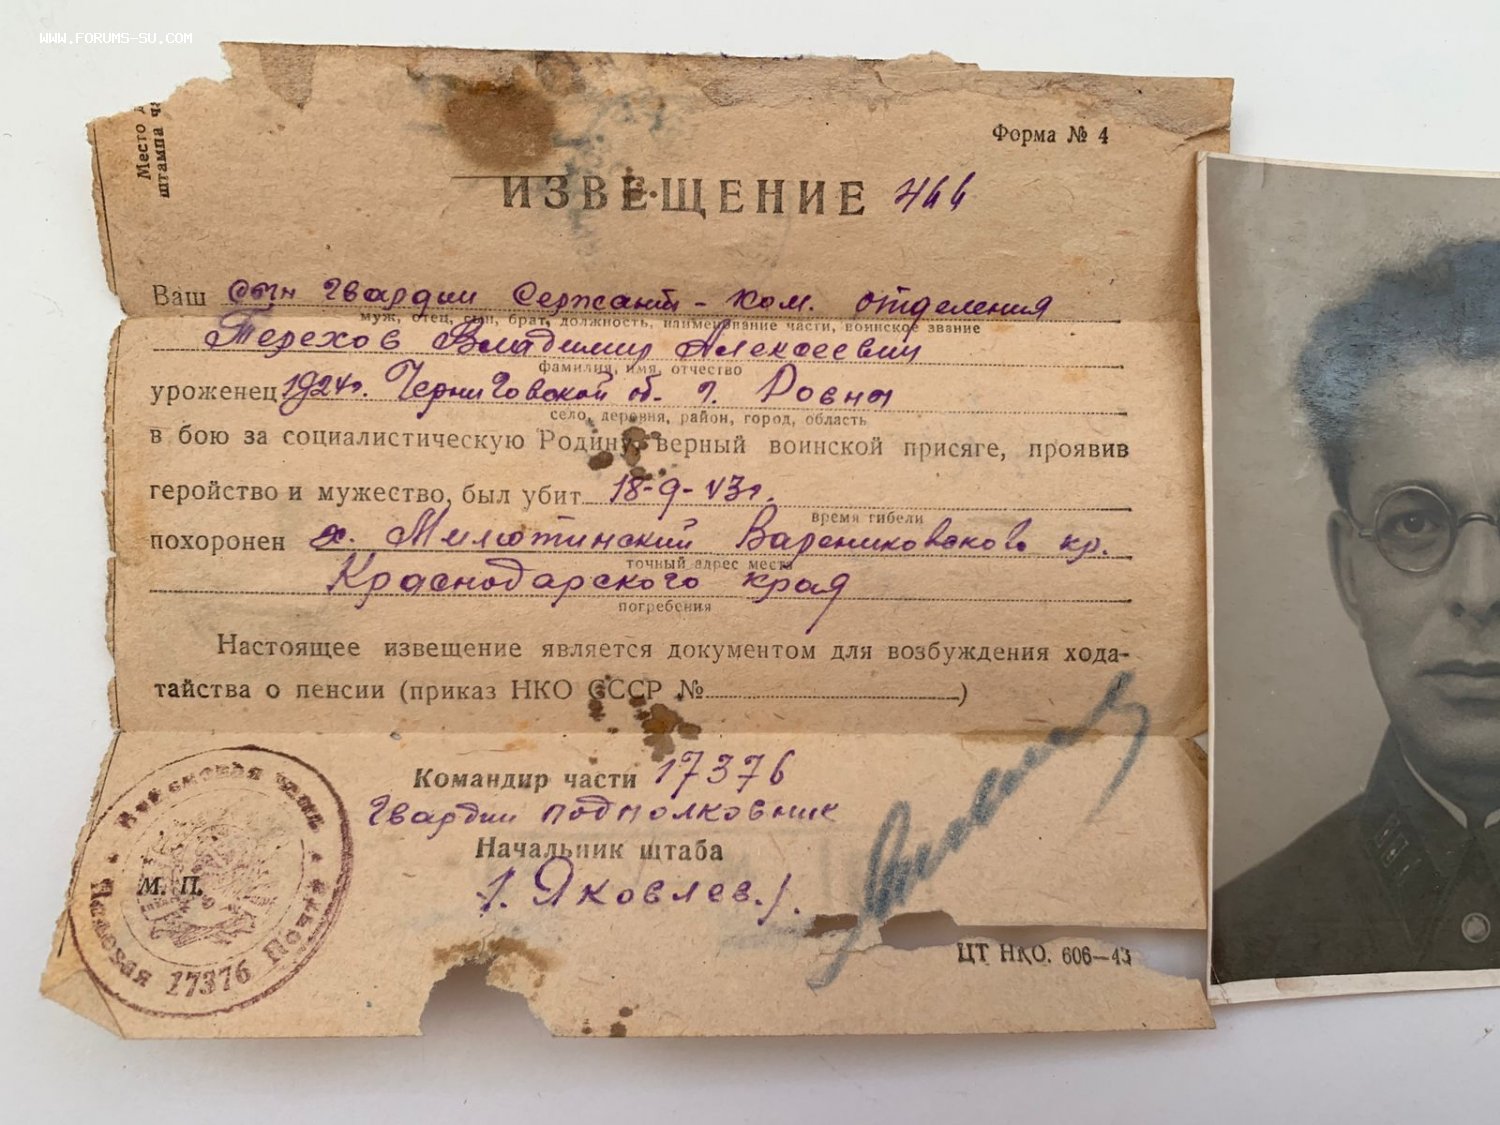 WWW.FORUMS-SU.COM
Место д
штампа ча
Форма № 4
ИЗВЕЩЕНИЕ 466
Ваш сын гвардии Сержант - ком. отделения
муж, отец, сын, брат, должность, наименование части, воинское звание
Терехов Владимир Алексеевич
фамилия, имя, отчество
уроженец 1924г. Черниговской об. г. Ровны
село, деревня, район, город, область
в бою за социалистическую Родину, верный воинской присяге, проявив
геройство и мужество, был убит 18-9-43г.
время гибели
похоронен х. Милютинский Варениковского кр.
точный адрес места
Краснодарского края
погребения
Настоящее извещение является документом для возбуждения хода-
тайства о пенсии (приказ НКО СССР № )
Командир части 17376
Гвардии подполковник
Начальник штаба
/. Яковлев./.
М. П.
Полевая 17376 Почта
ЦТ НКО. 606—43